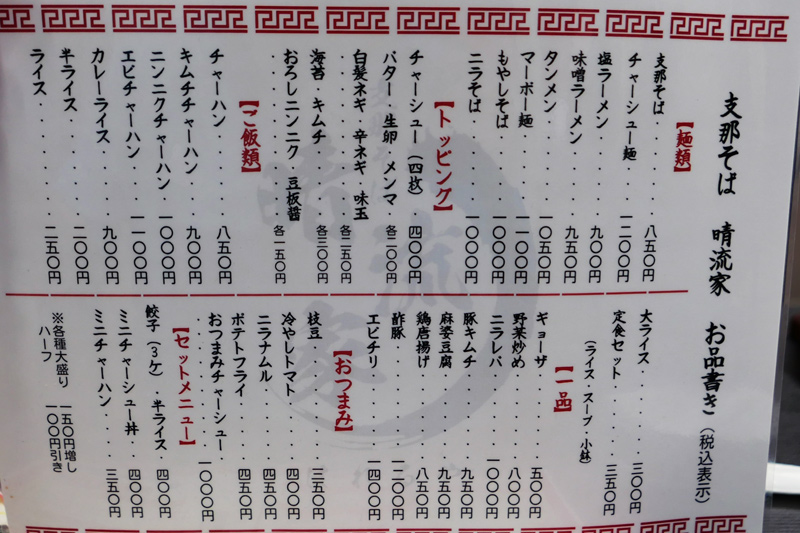 支那そば 晴流家 お品書き(税込表示)
【麺類】
支那そば・・・・・八五〇円
チャーシュー麺・・・一二〇〇円
塩ラーメン・・・・・九〇〇円
味噌ラーメン・・・・九五〇円
タンメン・・・・・一〇五〇円
マーボー麺・・・・一一〇〇円
もやしそば・・・・一〇〇〇円
ニラそば・・・・・一〇〇〇円
【トッピング】
チャーシュー(四枚)四〇〇円
バター 生卵 メンマ・各二〇〇円
白髪ネギ・辛ネギ・味玉
・・・・・・各二五〇円
海苔・キムチ・・・・各三〇〇円
おろしニンニク・豆板醤
・・・・・・各一五〇円
【ご飯類】
チャーハン・・・・・八五〇円
キムチチャーハン・・・九〇〇円
ニンニクチャーハン・一〇〇〇円
エビチャーハン・・・一一〇〇円
カレーライス・・・・九〇〇円
半ライス・・・・・・二〇〇円
ライス・・・・・・・二五〇円
大ライス・・・・・・三〇〇円
定食セット・・・・・三五〇円
(ライス・スープ・小鉢)
【一品】
ギョーザ・・・・・五〇〇円
野菜炒め・・・・・八〇〇円
ニラレバ・・・・・一〇〇〇円
豚キムチ・・・・・九五〇円
麻婆豆腐・・・・・九五〇円
鶏唐揚げ・・・・・八五〇円
酢豚・・・・・・一二〇〇円
エビチリ・・・・・一四〇〇円
【おつまみ】
枝豆・・・・・・・三五〇円
冷やしトマト・・・・四〇〇円
ニラナムル・・・・・四五〇円
ポテトフライ・・・・四五〇円
おつまみチャーシュー
・・・・・・・一〇〇〇円
【セットメニュー】
餃子(3ケ)・半ライス
・・・・・・・四〇〇円
ミニチャーシュー丼・・四〇〇円
ミニチャーハン・・・・三五〇円
※各種大盛り 一五〇円増し
ハーフ 一〇〇円引き